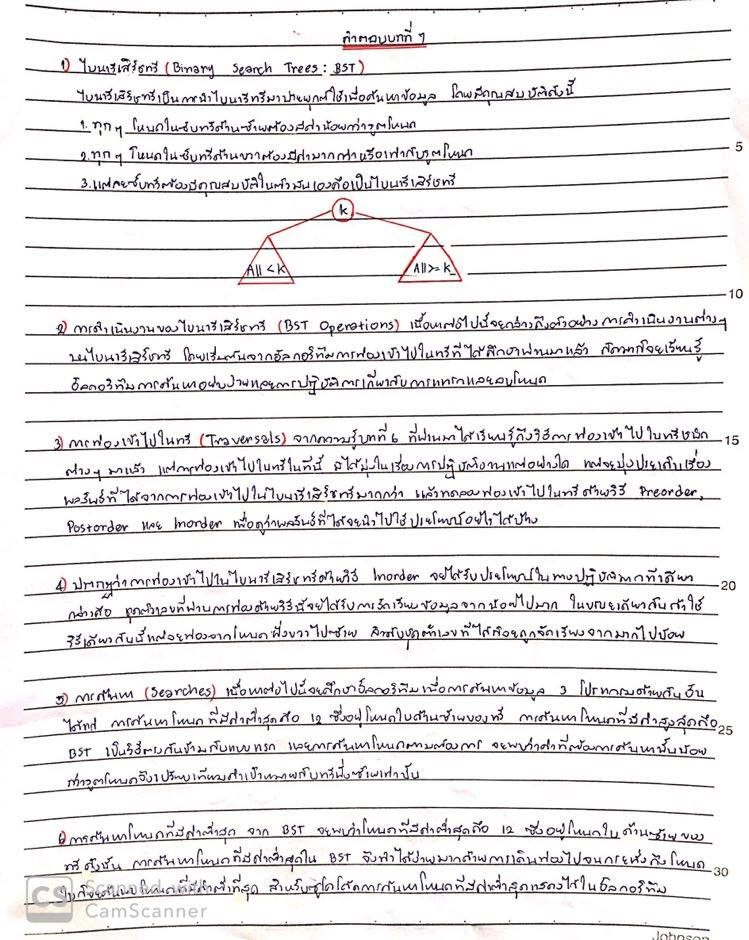 คำตอบบทที่ 7
1) ไบนารีเสิร์ชทรี (Binary Search Trees : BST)
ไบนารีเสิร์ชทรีเป็นการนำไบนารีทรีมาประยุกต์ใช้เพื่อค้นหาข้อมูล โดยมีคุณสมบัติดังนี้
1. ทุกๆ โหนดในซับทรีด้านซ้ายต้องมีค่าน้อยกว่ารูตโหนด
2. ทุกๆ โหนดในซับทรีด้านขวาต้องมีค่ามากกว่าหรือเท่ากับรูตโหนด
5
3. แต่ละซับทรีต้องมีคุณสมบัติในตัวมันเองคือเป็นไบนารีเสิร์ชทรี
k
All < k
All >= k
10
2) การดำเนินงานของไบนารีเสิร์ชทรี (BST Operations) เนื้อหาต่อไปนี้จะกล่าวถึงตัวอย่าง การดำเนินงานต่างๆ
บนไบนารีเสิร์ชทรี โดยเริ่มต้นจากอัลกอริทึมการท่องเข้าไปในทรีที่ได้ศึกษาผ่านมาแล้ว ถัดมาก็จะเรียนรู้
อัลกอริทึมการค้นหาอย่างง่ายและการปฏิบัติการเกี่ยวกับการแทรกและลบโหนด
3) การท่องเข้าไปในทรี (Traversals) จากความรู้บทที่ 6 ที่ผ่านมาได้เรียนรู้ถึงวิธีการท่องเข้าไปในทรีชนิด
15
ต่างๆ มาแล้ว แต่การท่องเข้าไปในทรีในที่นี้ มิได้มุ่งในเรื่องการปฏิบัติงานแต่อย่างใด แต่จะมุ่งประเด็นเรื่อง
ผลลัพธ์ที่ได้จากการท่องเข้าไปในไบนารีเสิร์ชทรีมากกว่า แล้วทดลองท่องเข้าไปในทรีด้วยวิธี Preorder,
Postorder และ Inorder เพื่อดูว่าผลลัพธ์ที่ได้จะนำไปใช้ประโยชน์อะไรได้บ้าง
4) ปรากฏว่าการท่องเข้าไปในไบนารีเสิร์ชทรีด้วยวิธี Inorder จะได้รับประโยชน์ในทางปฏิบัติมากทีเดียว
20
กล่าวคือ ชุดตัวเลขที่ผ่านการท่องด้วยวิธีนี้จะได้รับการจัดเรียงข้อมูลจากน้อยไปมาก ในขณะเดียวกันถ้าใช้
วิธีเดียวกันนี้แต่จะท่องจากโหนดฝั่งขวาไปซ้าย ลำดับชุดตัวเลขที่ได้ก็จะถูกจัดเรียงจากมากไปน้อย
5) การค้นหา (Searches) เนื้อหาต่อไปนี้จะศึกษาอัลกอริทึมเพื่อการค้นหาข้อมูล 3 โปรแกรมด้วยกัน อัน
ได้แก่ การค้นหาโหนดที่มีค่าต่ำสุดคือ 12 ซึ่งอยู่โหนดใบด้านซ้ายของทรี การค้นหาโหนดที่มีค่าสูงสุดคือ
25
BST เป็นวิธีตรงกันข้ามกับแบบแรก และการค้นหาโหนดตามต้องการ จะพบว่าค่าที่ต้องการค้นหานั้นน้อย
กว่ารูตโหนดจึงเปรียบเทียบค่าเป้าหมายกับทรีฝั่งซ้ายเท่านั้น
6) การค้นหาโหนดที่มีค่าต่ำสุด จาก BST จะพบว่าโหนดที่มีค่าต่ำสุดคือ 12 ซึ่งอยู่โหนดใบ ด้านซ้ายของ
ทรี ดังนั้น การค้นหาโหนดที่มีค่าต่ำสุดใน BST จึงทำได้ง่ายมากด้วยการเดินท่องไปจนกระทั่งถึงโหนด
30
ใบก็จะค้นพบโหนดที่มีค่าต่ำที่สุด สำหรับซูโดโค้ดการค้นหาโหนดที่มีค่าต่ำสุดแสดงไว้ในอัลกอริทึม
CS Scanned with
CamScanner
Johnson